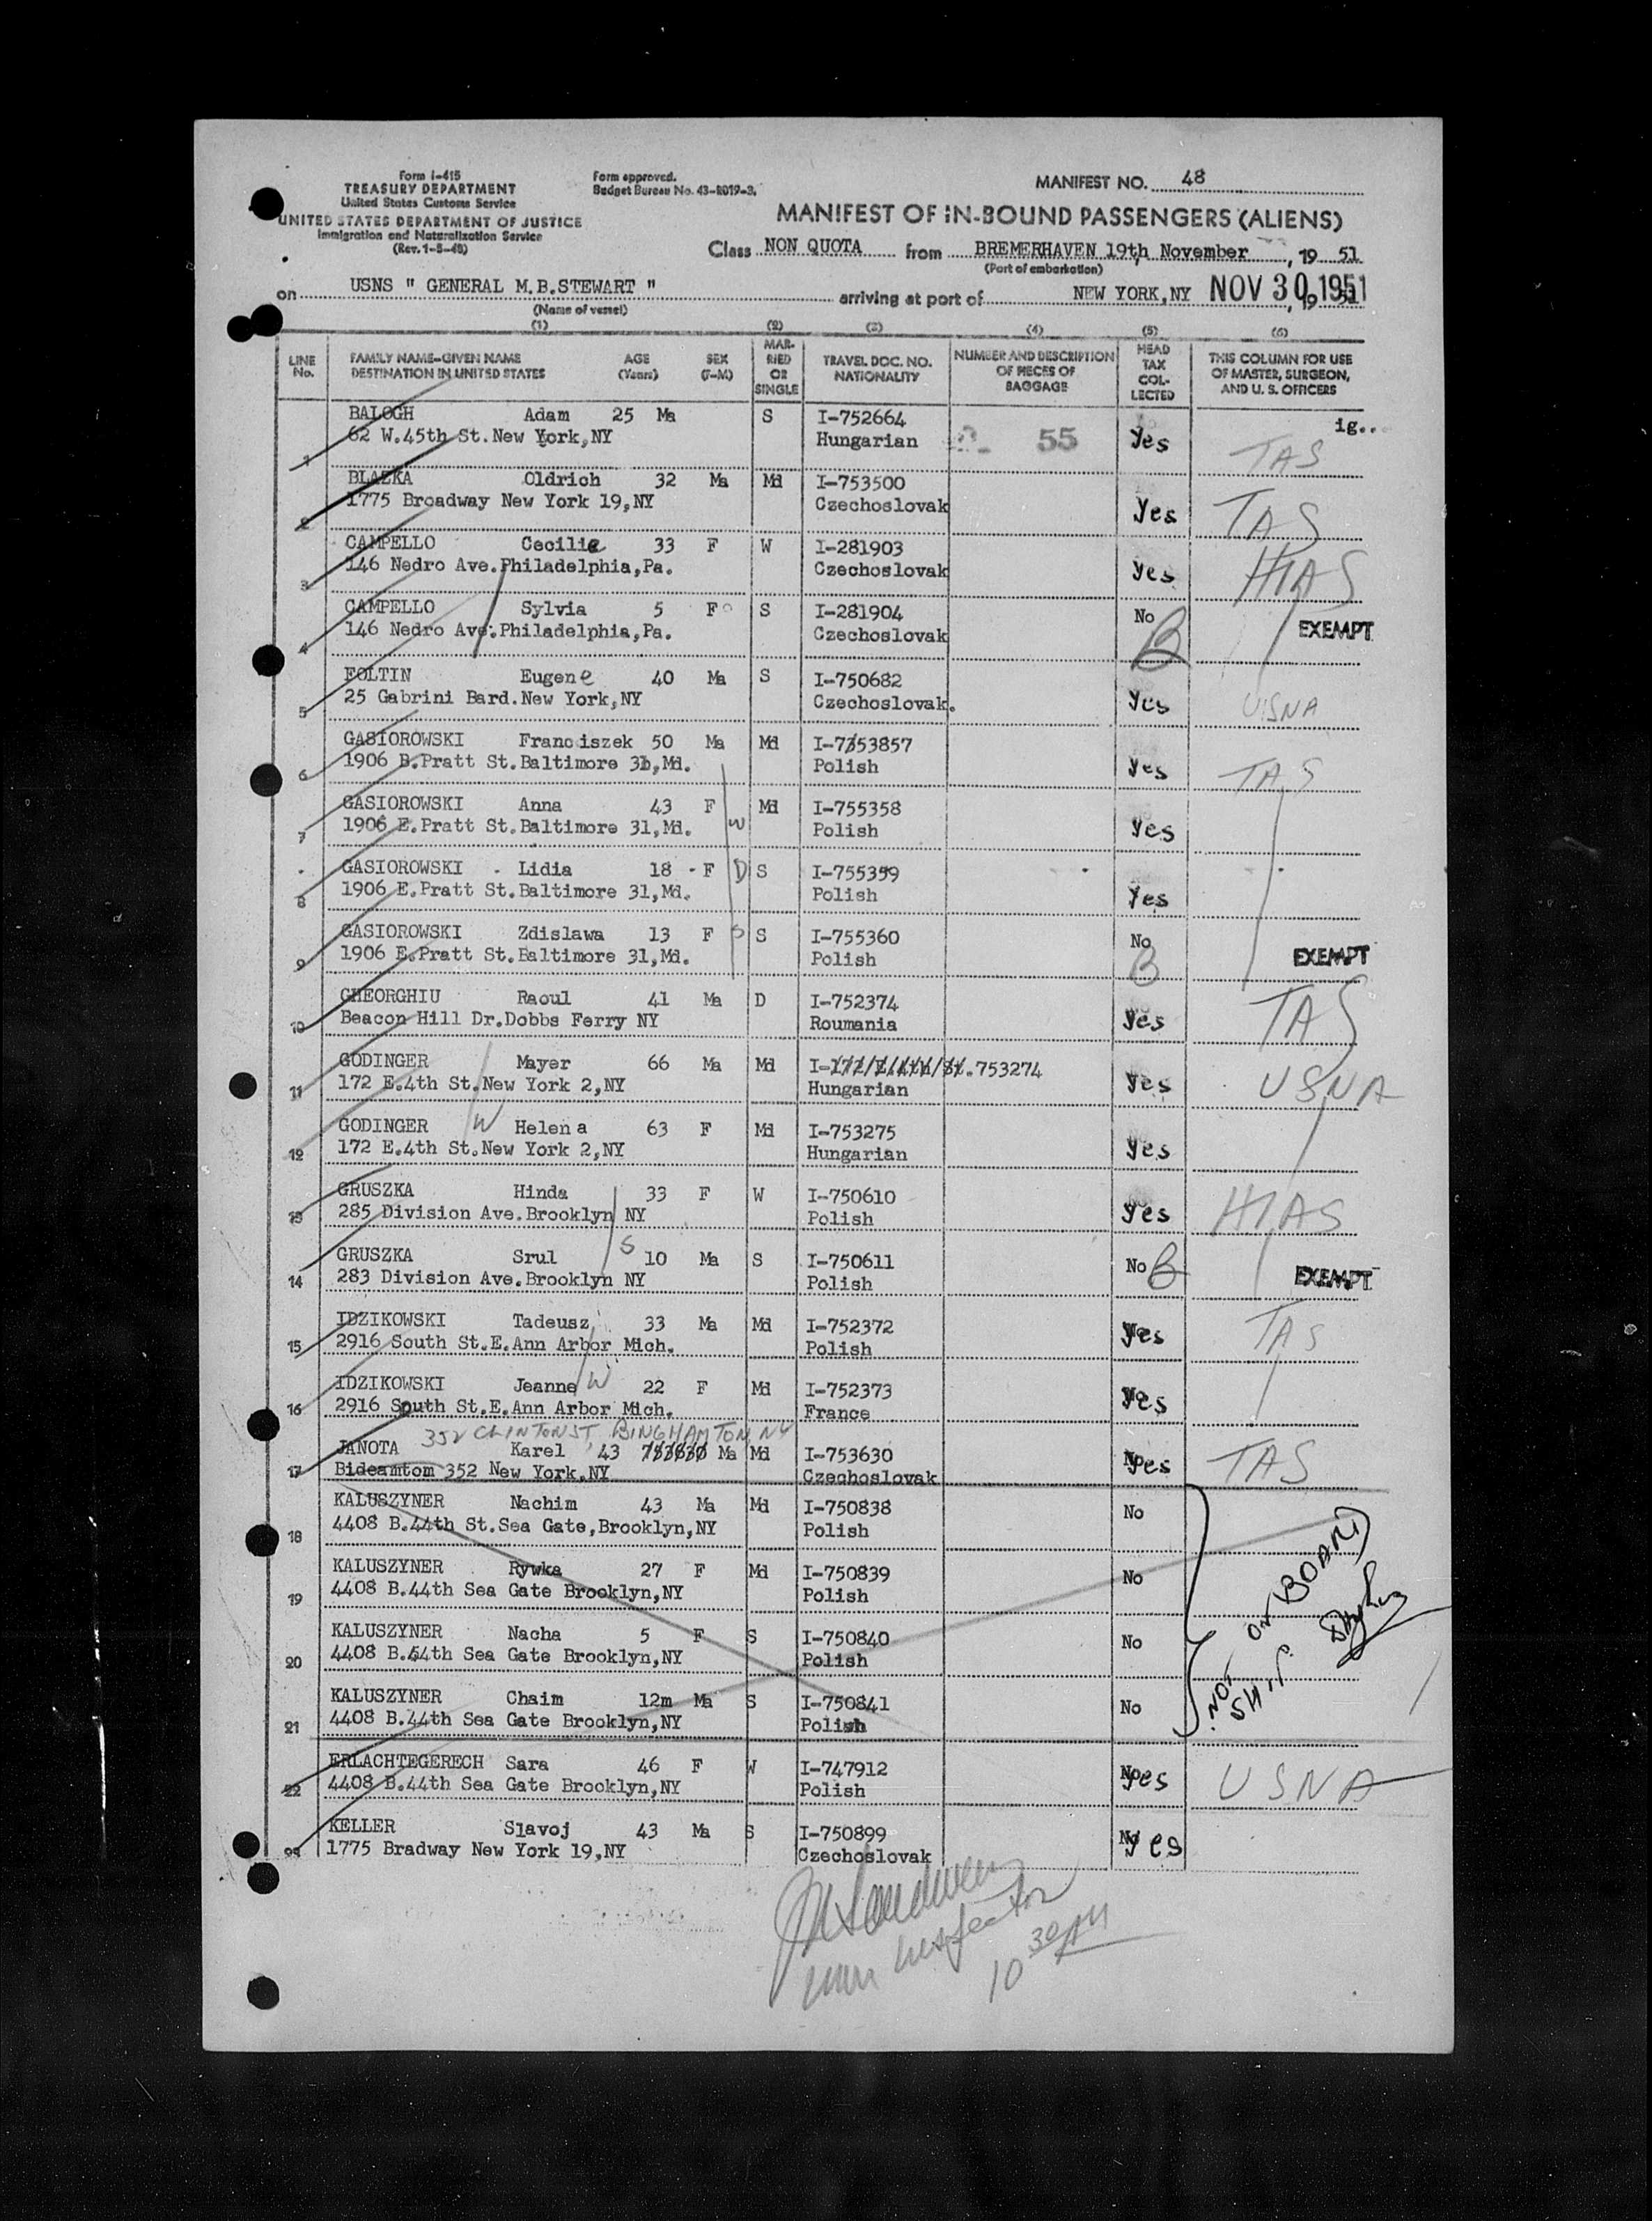 Form I-415
TREASURY DEPARTMENT
United States Customs Service
UNITED STATES DEPARTMENT OF JUSTICE
Immigration and Naturalization Service
(Rev. 1-5-48)
Form approved.
Budget Bureau No. 43-R019-3.
MANIFEST NO. 48
MANIFEST OF IN-BOUND PASSENGERS (ALIENS)
Class NON QUOTA from BREMERHAVEN 19th November, 19 51
(Port of embarkation)
on USNS " GENERAL M.B.STEWART " arriving at port of NEW YORK,NY NOV 30 1951, 19 51
(Name of vessel)
(1) (2) (3) (4) (5) (6)
LINE No. FAMILY NAME-GIVEN NAME DESTINATION IN UNITED STATES AGE (Years) SEX (F-M) MARRIED OR SINGLE TRAVEL DOC. NO. NATIONALITY NUMBER AND DESCRIPTION OF PIECES OF BAGGAGE HEAD TAX COLLECTED THIS COLUMN FOR USE OF MASTER, SURGEON, AND U. S. OFFICERS
1 BALOGH Adam 25 Ma S I-752664 ig..
62 W.45th St.New York,NY Hungarian 55 Yes TAS
2 BLAZKA Oldrich 32 Ma Md I-753500
1775 Broadway New York 19,NY Czechoslovak Yes TAS
3 CAMPELLO Cecilie 33 F W I-281903
146 Nedro Ave.Philadelphia,Pa. Czechoslovak Yes HIAS
4 CAMPELLO Sylvia 5 F S I-281904 No B
146 Nedro Ave.Philadelphia,Pa. Czechoslovak EXEMPT
5 FOLTIN Eugene 40 Ma S I-750682
25 Gabrini Bard.New York,NY Czechoslovak. Yes USNA
6 GASIOROWSKI Franciszek 50 Ma Md I-753857
1906 B.Pratt St.Baltimore 31,Md. Polish Yes TAS
7 GASIOROWSKI Anna 43 F W Md I-755358
1906 E.Pratt St.Baltimore 31,Md. Polish Yes
8 GASIOROWSKI Lidia 18 F D S I-755359
1906 E.Pratt St.Baltimore 31,Md. Polish Yes
9 GASIOROWSKI Zdislawa 13 F S I-755360 No B
1906 E.Pratt St.Baltimore 31,Md. Polish EXEMPT
10 GHEORGHIU Raoul 41 Ma D I-752374
Beacon Hill Dr.Dobbs Ferry NY Roumania Yes TAS
11 GODINGER Mayer 66 Ma Md I- 753274
172 E.4th St.New York 2,NY Hungarian Yes USNA
12 GODINGER W Helena 63 F Md I-753275
172 E.4th St.New York 2,NY Hungarian Yes
13 GRUSZKA Hinda 33 F W I-750610
285 Division Ave.Brooklyn NY Polish Yes HIAS
14 GRUSZKA Srul S 10 Ma S I-750611 No B
283 Division Ave.Brooklyn NY Polish EXEMPT
15 IDZIKOWSKI Tadeusz 33 Ma Md I-752372
2916 South St.E.Ann Arbor Mich. Polish Yes TAS
16 IDZIKOWSKI Jeanne W 22 F Md I-752373
2916 South St.E.Ann Arbor Mich. France Yes
352 CLINTON ST, BINGHAMTON, NY
17 JANOTA Karel 43 Ma Md I-753630
Bideamtom 352 New York,NY Czechoslovak Yes TAS
18 KALUSZYNER Nachim 43 Ma Md I-750838 No
4408 B.44th St.Sea Gate,Brooklyn,NY Polish
19 KALUSZYNER Rywka 27 F Md I-750839 No
4408 B.44th Sea Gate Brooklyn,NY Polish
20 KALUSZYNER Nacha 5 F S I-750840 No
4408 B.44th Sea Gate Brooklyn,NY Polish
21 KALUSZYNER Chaim 12m Ma S I-750841 No
4408 B.44th Sea Gate Brooklyn,NY Polish
NOT ON BOARD
SHIP.
22 ERLACHTEGERECH Sara 46 F W I-747912
4408 B.44th Sea Gate Brooklyn,NY Polish Yes USNA
23 KELLER Slavoj 43 Ma S I-750899
1775 Bradway New York 19,NY Czechoslovak Yes
Inspector
10 30 AM